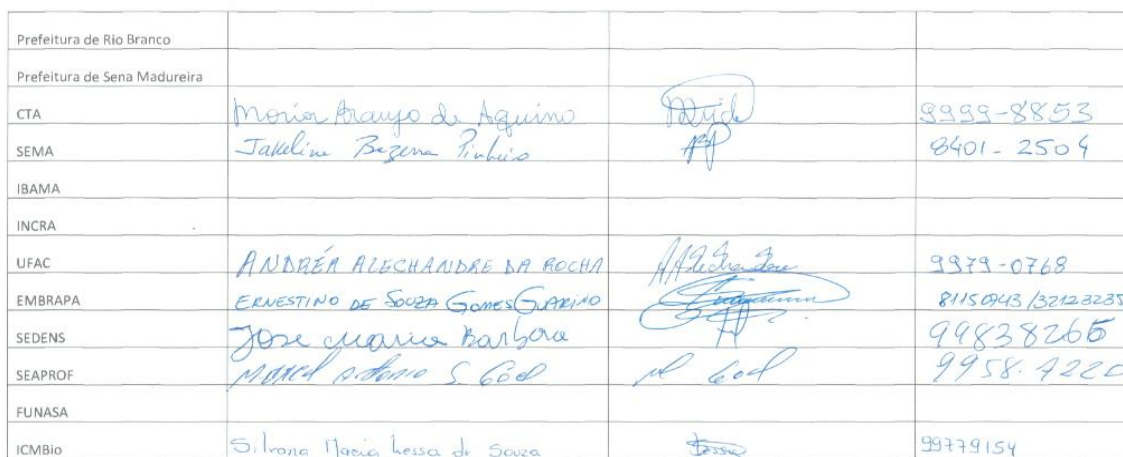 Prefeitura de Rio Branco
Prefeitura de Sena Madureira
CTA Maria Araujo de Aquino 9999-8853
SEMA Jakeline Bezerra Pinheiro 8401-2504
IBAMA
INCRA
UFAC ANDRÉA ALECHANDRE DA ROCHA AAlechandre 9979-0768
EMBRAPA ERNESTINO DE SOUZA GOMES GUARINO 81150943/32123235
SEDENS Jose Maria Barbosa 99838265
SEAPROF Antonio S. 9958-
FUNASA
ICMBio Silvana Maria Lessa de Souza Lessa 99779154